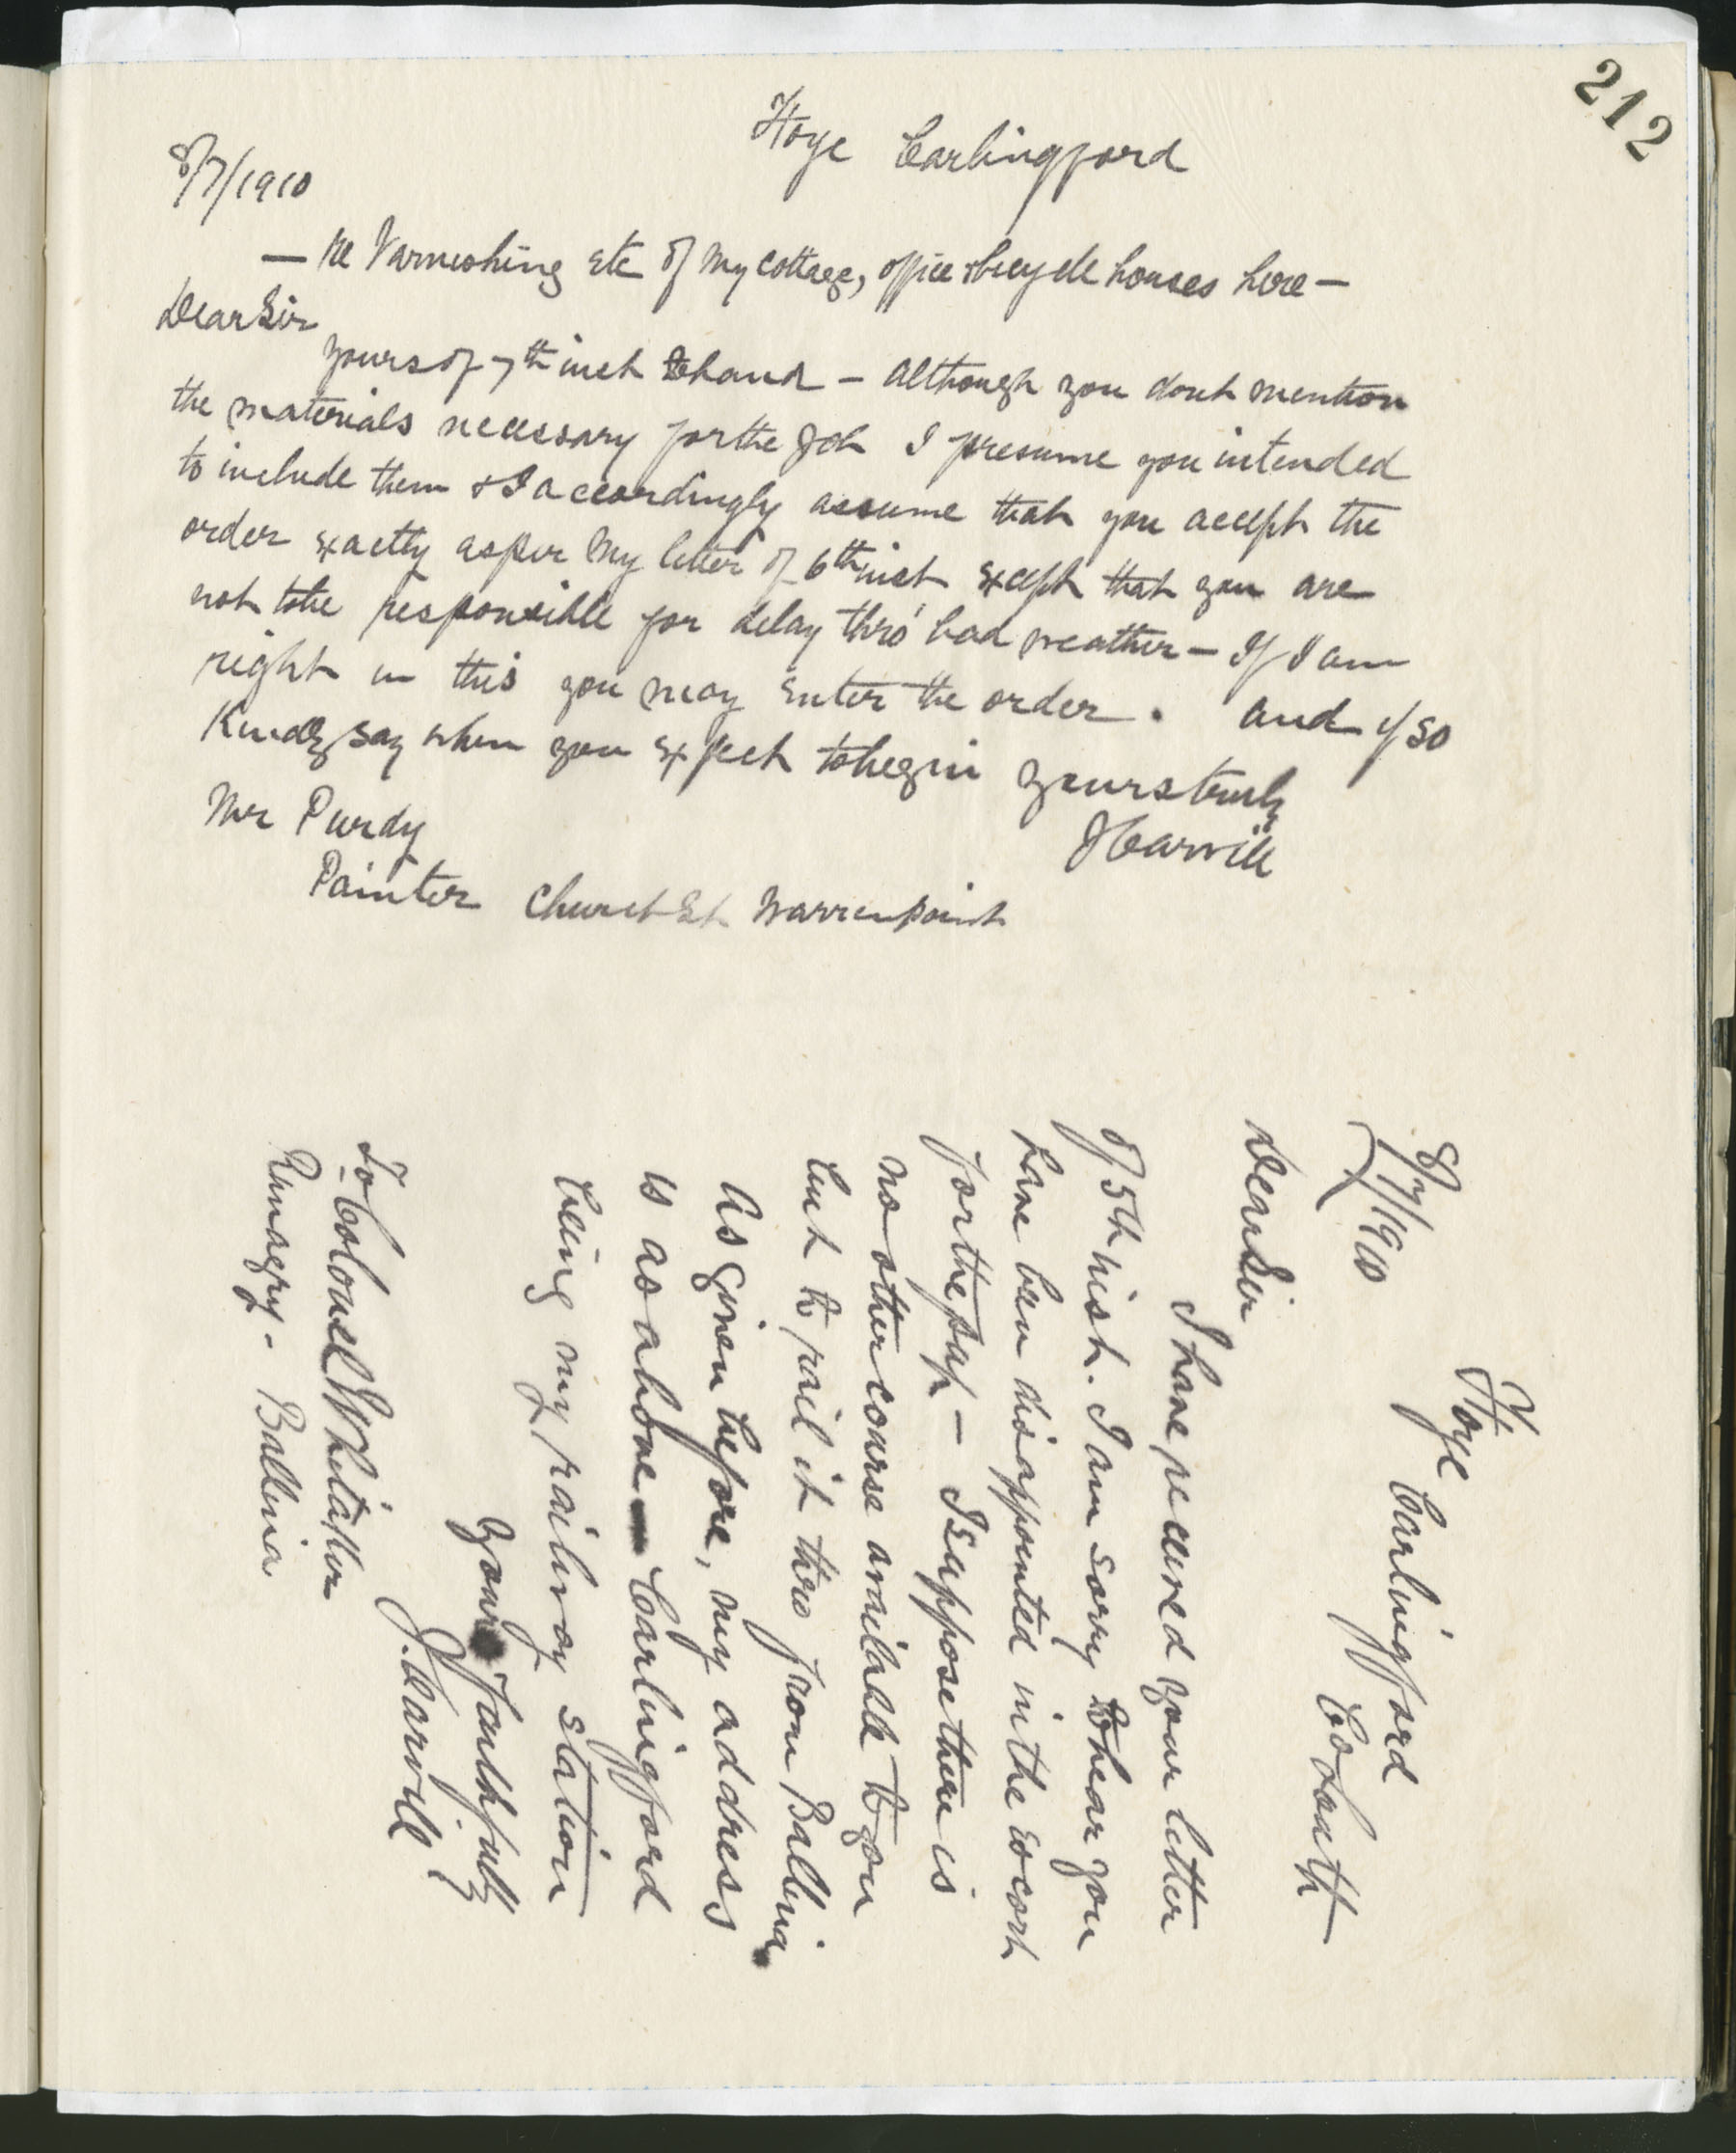 212
Hoye Carlingford
8/7/1910
— Re Varnishing etc of my cottage, office & bicycle houses here —
Dear Sir
yours of 7th inst to hand — Although you dont mention
the materials necessary for the job I presume you intended
to include them & I accordingly assume that you accept the
order exactly as per my letter of 6th inst except that you are
not to be responsible for delay thro' bad weather — If I am
right in this you may enter the order. and if so
Kindly say when you expect to begin yours truly
JCarvill
Mr Purdy
Painter Church St Warrenpoint
Hoye
Carlingford
Co Louth
8/7/1910
Dear Sir
I have received your letter
of 5th inst. I am sorry to hear you
have been disappointed in the escort
for the pup — I suppose there is
no other course available to you
but to rail it thro from Ballina
As given before, my address
is as above — Carlingford
being my railway station
Yours faithfully
J. Carvill
To Colonel Whitaker
Ballina